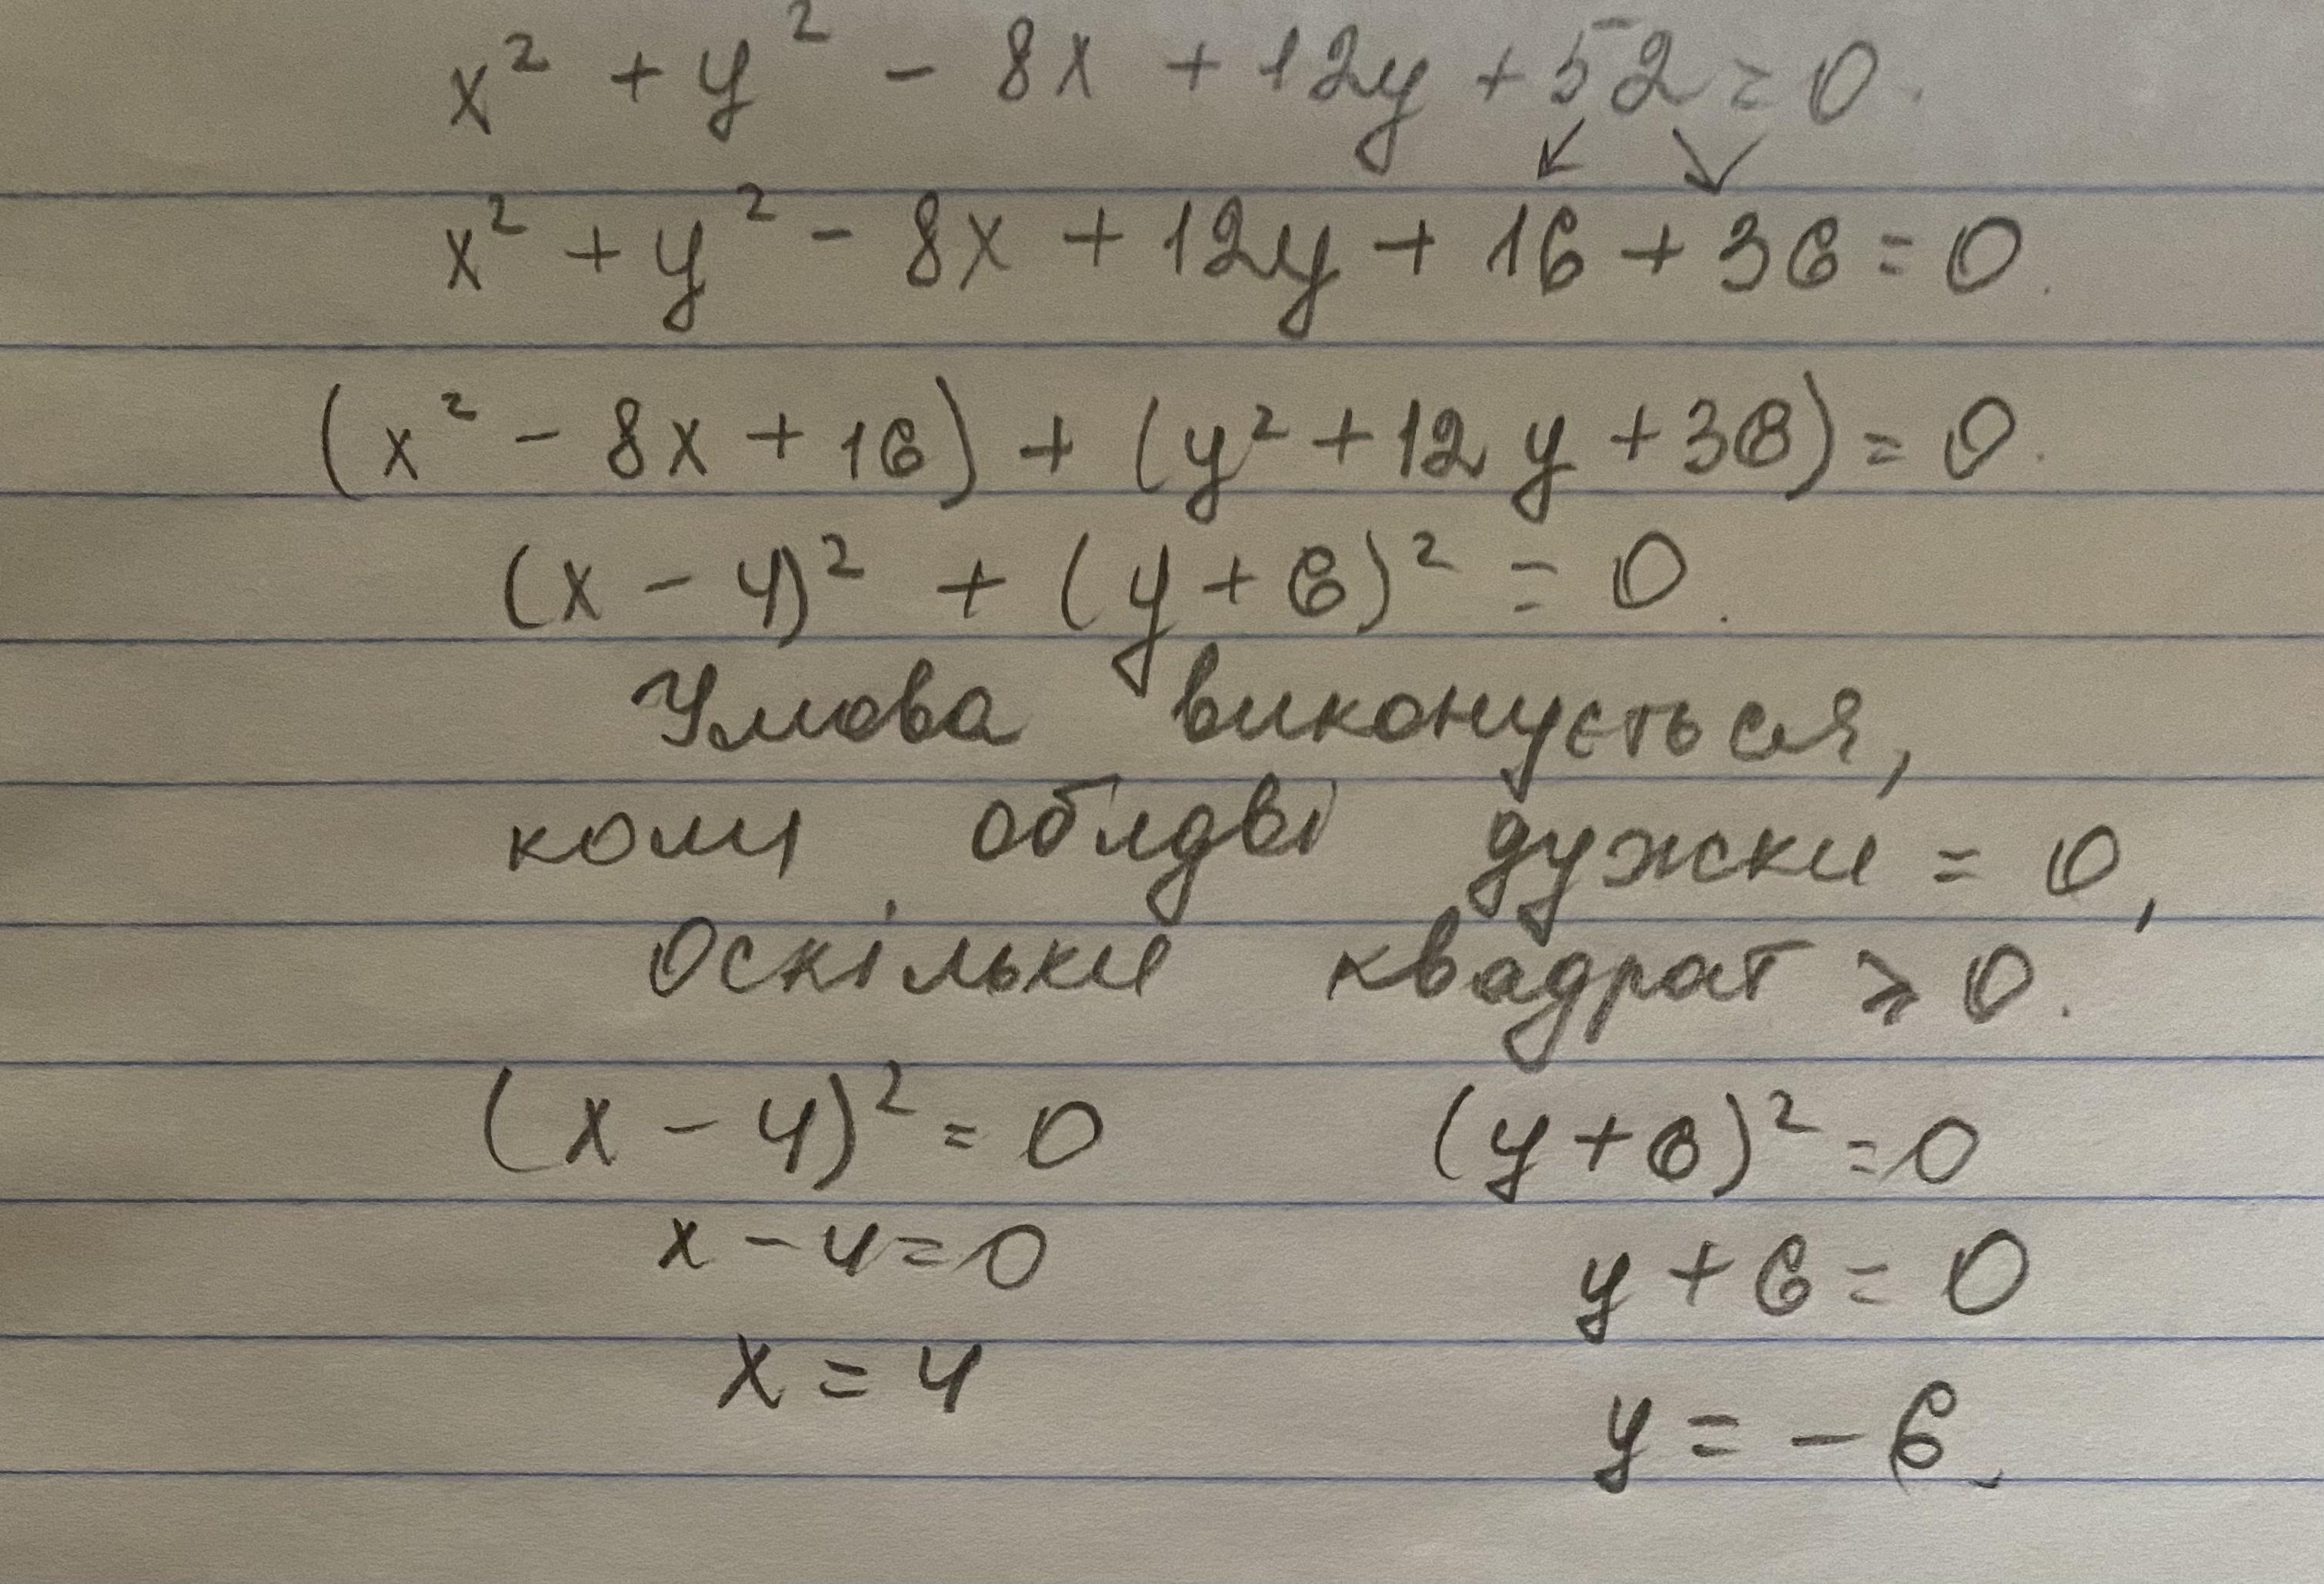 x² + y² - 8x + 12y + 52 = 0.
x² + y² - 8x + 12y + 16 + 36 = 0.
(x² - 8x + 16) + (y² + 12y + 36) = 0.
(x - 4)² + (y + 6)² = 0.
Умова виконується,
коли обидві дужки = 0,
оскільки квадрат ⩾ 0.
(x - 4)² = 0 (y + 6)² = 0
x - 4 = 0 y + 6 = 0
x = 4 y = - 6.